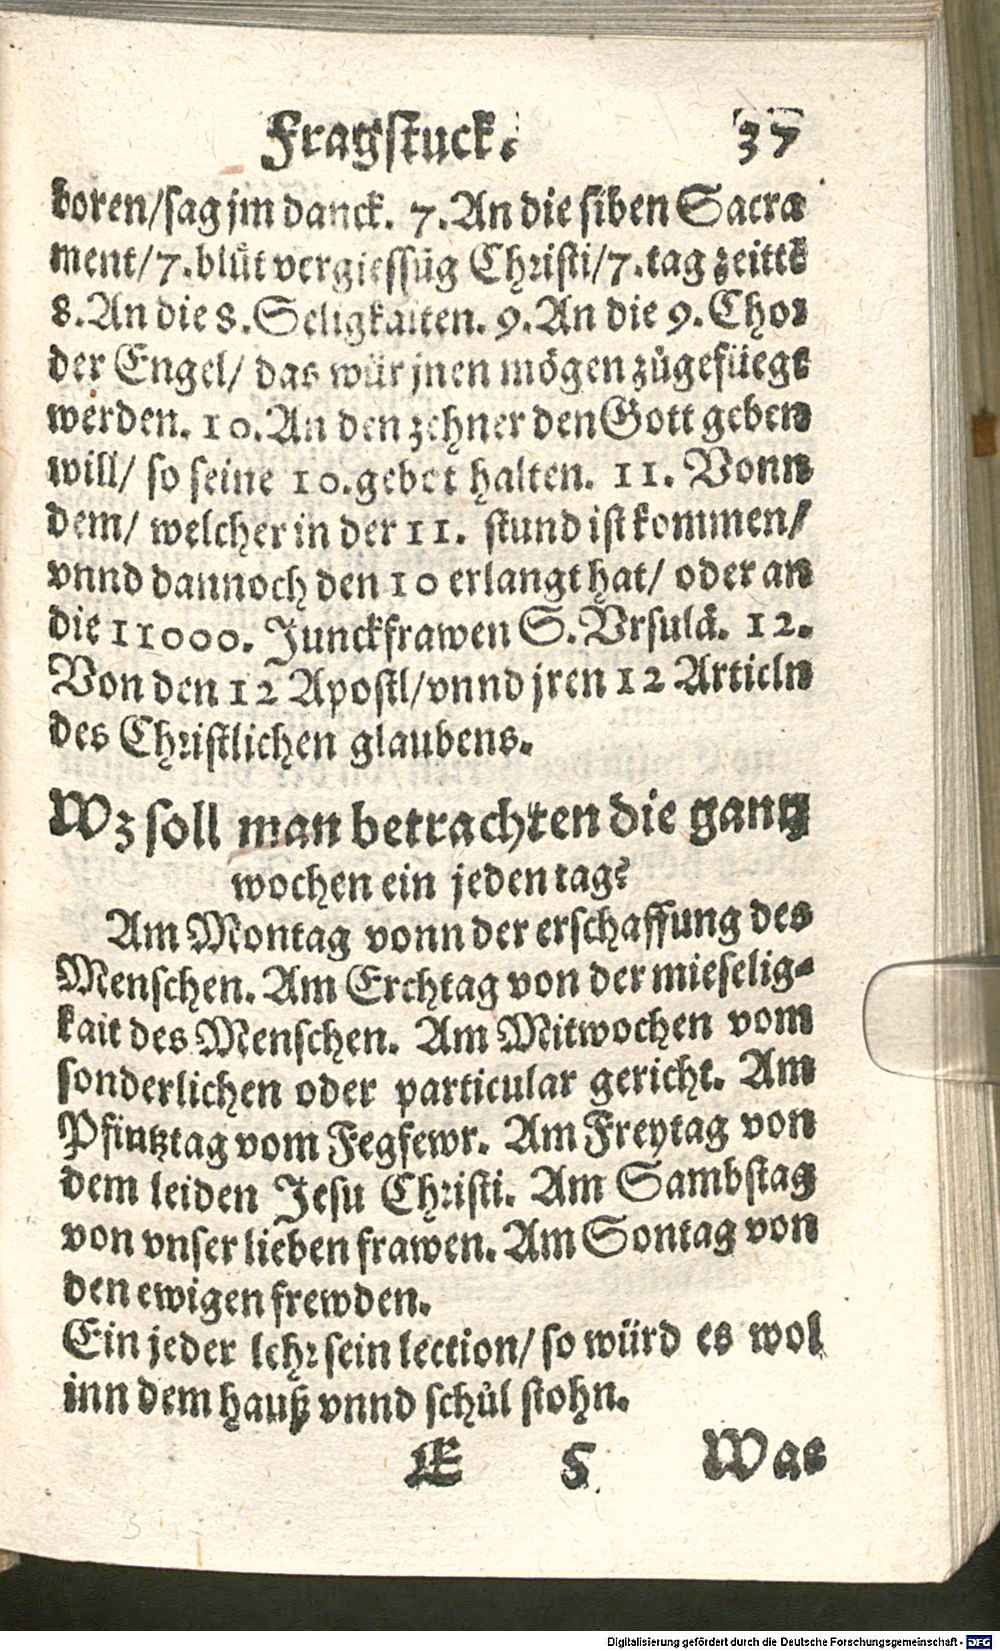 Fragstuck. 37
boren/sag jm danck. 7. An die siben Sacra
ment/7. blůt vergiessũg Christi/7. tag zeittẽ
8. An die 8. Seligkaiten. 9. An die 9. Chor
der Engel/ das wür jnen mögen zůgefüegt
werden. 10. An den zehner den Gott geben
will/ so seine 10. gebot halten. 11. Vonn
dem/ welcher in der 11. stund ist kommen/
vnnd dannoch den 10 erlangt hat/ oder an
die 11000. Junckfrawen S. Vrsulä. 12.
Von den 12 Apostl/vnnd jren 12 Articln
des Christlichen glaubens.
Wz soll man betrachten die gantz
wochen ein jeden tag?
Am Montag vonn der erschaffung des
Menschen. Am Erchtag von der mieselig-
kait des Menschen. Am Mitwochen vom
sonderlichen oder particular gericht. Am
Pfintztag vom Fegfewr. Am Freytag von
dem leiden Jesu Christi. Am Sambstag
von vnser lieben frawen. Am Sontag von
den ewigen frewden.
Ein jeder lehr sein lection/ so würd es wol
inn dem hauß vnnd schůl stohn.
E 5 Was
3
Digitalisierung gefördert durch die Deutsche Forschungsgemeinschaft - DFG